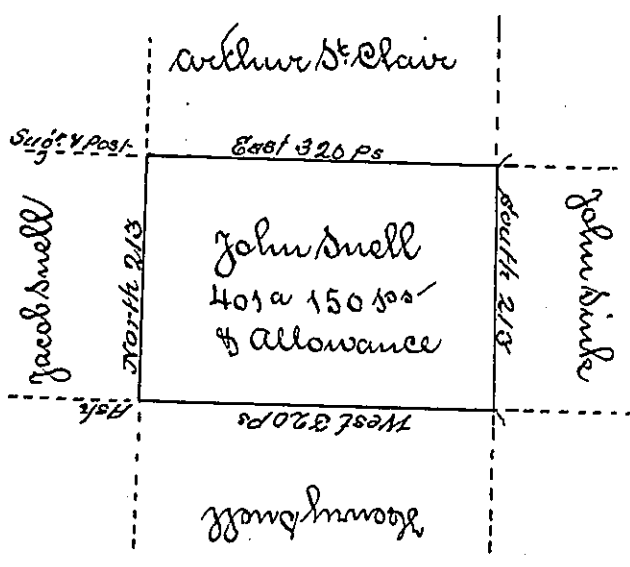 Arthur St. Clair
Sugr. & Post
East 320 Ps
Jacob Snell
North 213
John Snell
401 a 150 ps
& Allowance
South 213
John Sink
Ash
West 320 Ps
Henry Snell